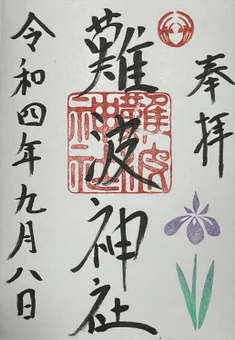 奉拝
難波神社
難波神社
令和四年九月八日